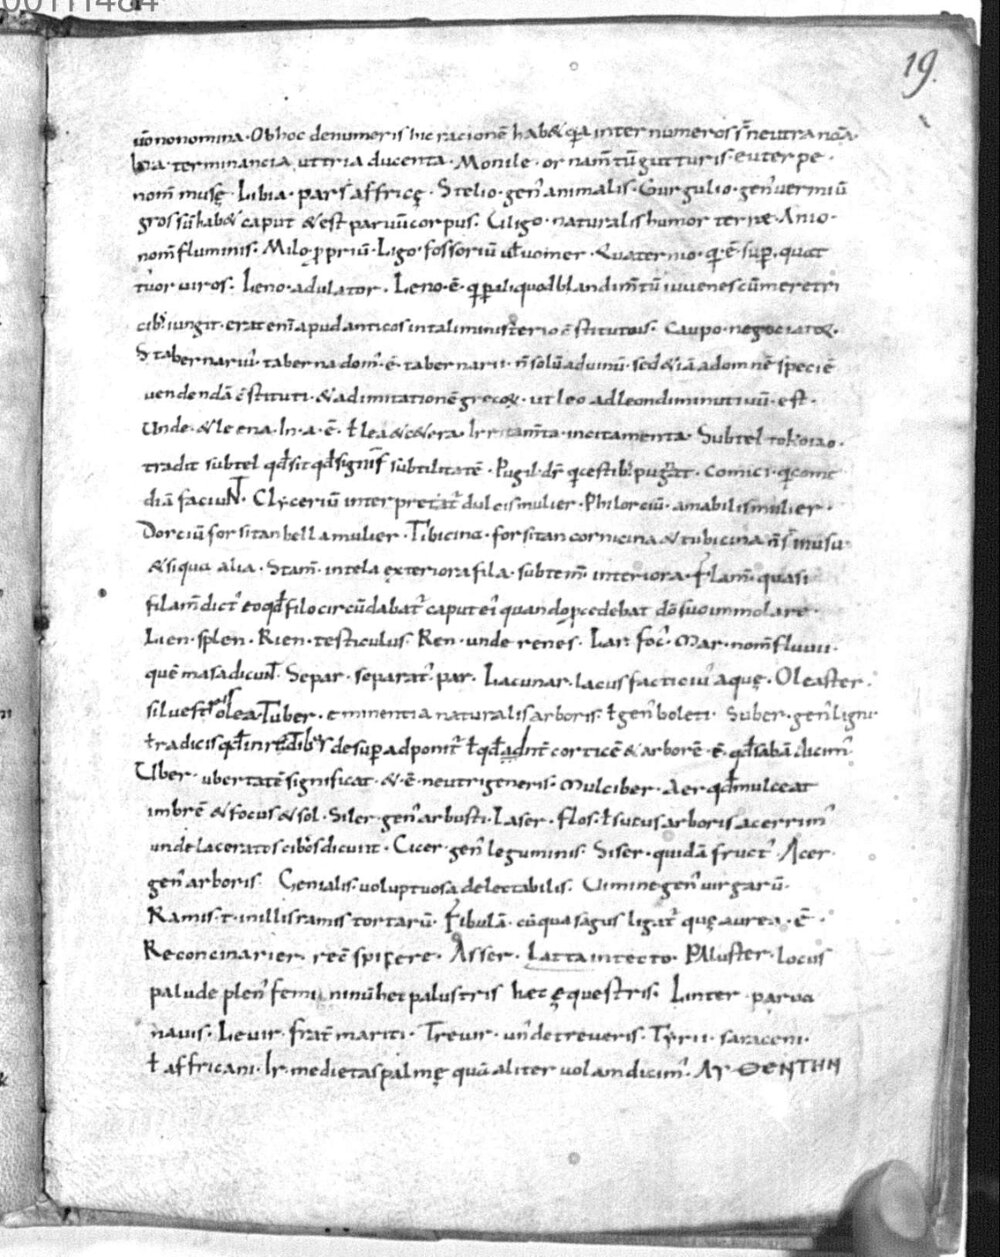 00111484
19.
uo nonomina · Ob hoc denumeris huc racionē hab& qa inter numeros neutra
terminancia ut tria ducenta · Monile · or nam̄tū gutturis · euterpe ·
nom̄ musę · Libia · pars affricę · Stelio · gen' animalis · Gurgulio · gen' uermiū
gros sū hab& caput & est paruū corpus · Uligo · naturalis humor terrae · Anio ·
nom̄ fluminis · Milo ꝓpriū · Ligo · fossoriū uł uomer · Quaternio · q̣ · ē · sup̱ · quat
tuor uiros · Leno · adulator · Leno · ē · qui blandim̄tū iuuenes cū meretri
cib; iungit · erat enī apud anticos in tali ministerio c̄stitutus · Caupo · negociatoꝝ ·
S tabernariu' · taberna dom' · ē · tabernarii · n̄ solū aduinū · sed &iā adomnē speciē
uendendā c̄stituti · & ad imitationē grecoꝝ · ut leo adleon diminutiuū · est ·
Unde · & leena · In · a · ē · ł lea & c&era · Irritam̄ta · incitamenta · Subtel
tradit subtel qđ sit qđ signif subtilitatē · Pugil · dr̄ q cestib; pugnat · comici · q comoe
diā faciuNT · Clyceriū interpretat' dulcis mulier · Philorciū · amabilis mulier ·
Dorciū forsitan bella mulier · Tibicina · forsitan cornicina & tubicina n̄ s̄ in usu
& siqua alia · Stam̄ · in tela exteriora fila · subtem̄ · interiora · Flam̄ · quasi
filam̄ dict' eo qđ filo circūdabat' caput ei' quando ꝓcedebat dō suo immolare ·
Lien · splen · Rien · testiculus · Ren · unde renes · Lar · foc' · Mar · nom̄ fluuii ·
quē masa dicuNT · Separ · separat' · par · Lacunar · lacus facticiu' aquę · Oleaster ·
siluestris olea · Tuber · eminentia naturalis arboris · ł gen' boleti · Suber · gen' ligni
ł radicis qđ in desup̱ adponit' ł qđ corticē & arborē · ē · qđ sabā dicim'
Uber · ubertatē significat · & · ē · neutri generis · Mulciber · Aer qđ mulceat
imbrē & focus & sol · Siler · gen' arbusti · Laser · flos · ł sucus arboris acerrim'
unde laceratos cibos dicunt · Cicer · gen' leguminis · Siser · quidā fruct' · Acer ·
gen' arboris · Genialis · uoluptuosa delectabilis · Uimine gen' uirgarū ·
Ramis · t · in illis ramis tortarū · Fibulā · cū qua sagus ligat' quę aurea · ē ·
Reconcinarier · Asser · Latta in tecto · Paluster · locus
palude plen' femininū hec palustris hec ęquestris · Linter · parua
nauis · Leuir · frat̄ mariti · Treuir · unde treueris · Tyrii · saraceni ·
ł affricani · Ir · medietas palmę quā aliter uolam dicim' · ΑΥΘΕΝΤΗΝ